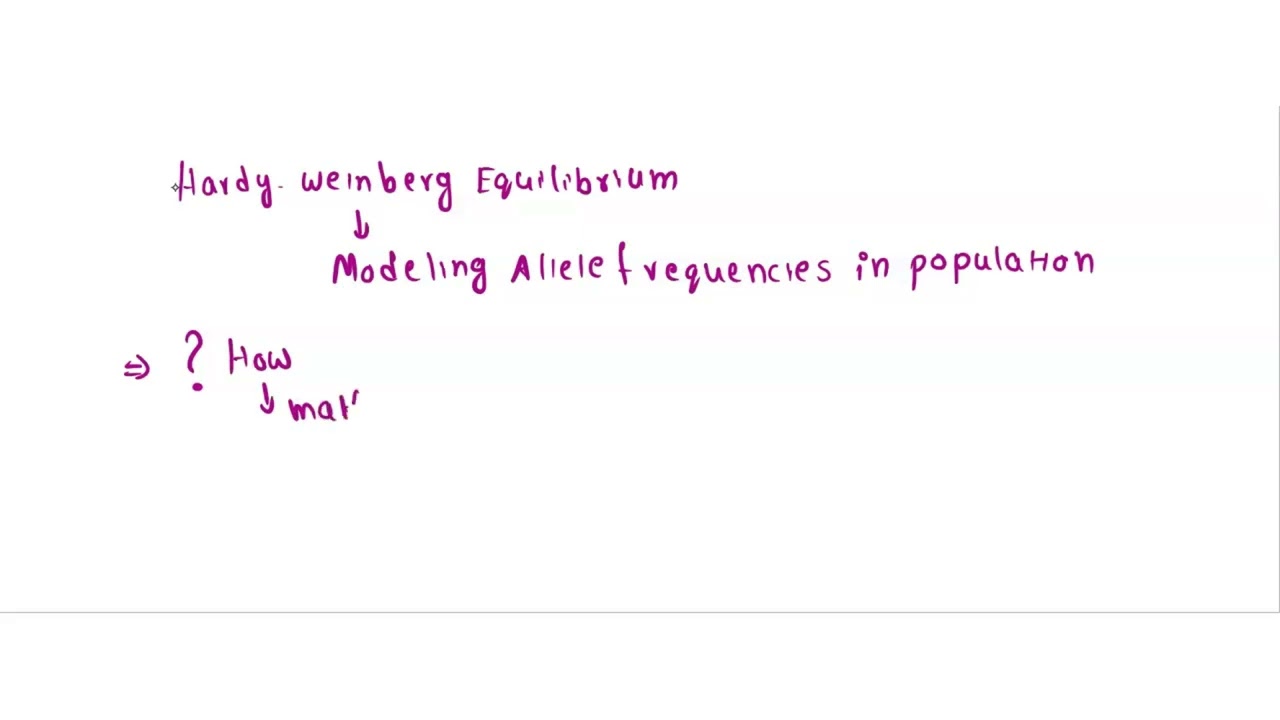 Hardy-Weinberg Equilibrium
↓
Modeling Allele frequencies in population
⇒ ? How
↓